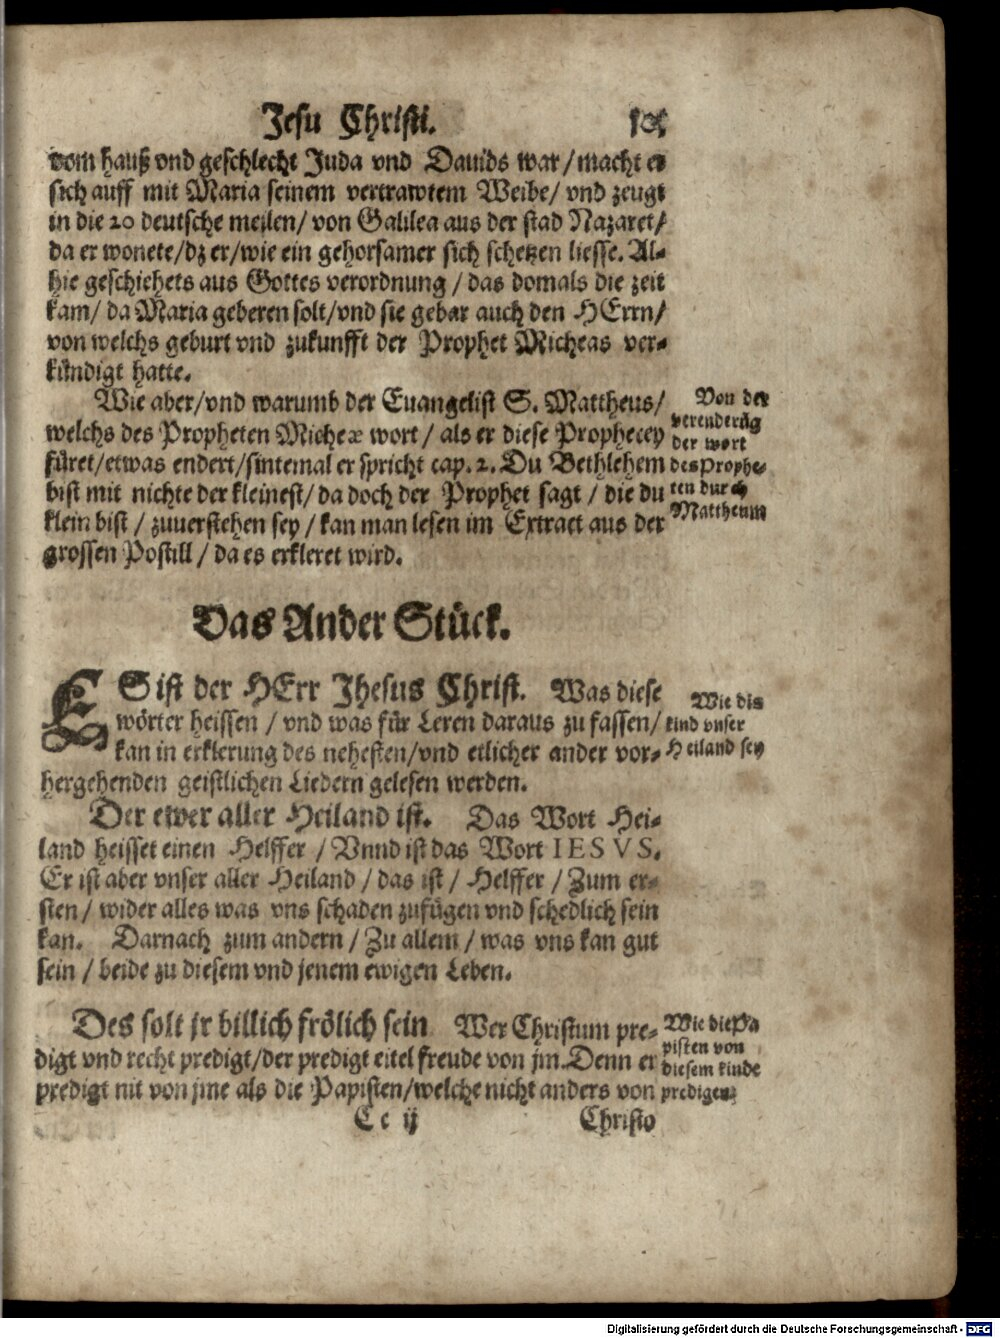 Jesu Christi. 101
vom hauß vnd geschlecht Juda vnd Dauids war / macht er
sich auff mit Maria seinem vertrawtem Weibe / vnd zeugt
in die 20 deutsche meilen / von Galilea aus der stad Nazaret /
da er wonete / dz er / wie ein gehorsamer sich schetzen liesse. Al-
hie geschiehets aus Gottes verordnung / das domals die zeit
kam / da Maria geberen solt / vnd sie gebar auch den HErrn /
von welchs geburt vnd zukunfft der Prophet Micheas ver-
kündigt hatte.
Wie aber / vnd warumb der Euangelist S. Mattheus /
welchs des Propheten Micheæ wort / als er diese Prophecey
füret / etwas endert / sintemal er spricht cap. 2. Du Bethlehem
bist mit nichte der kleinest / da doch der Prophet sagt / die du
klein bist / zuuerstehen sey / kan man lesen im Extract aus der
grossen Postill / da es erkleret wird.
Von der
verenderũg
der wort
des Prophe-
ten durch
Mattheum
Das Ander Stück.
ES ist der HErr Jhesus Christ. Was diese
wörter heissen / vnd was für Leren daraus zu fassen /
kan in erklerung des nehesten / vnd etlicher ander vor-
hergehenden geistlichen Liedern gelesen werden.
Wie dis
kind vnser
Heiland sey
Der ewer aller Heiland ist. Das Wort Hei-
land heisset einen Helffer / Vnnd ist das Wort IESVS.
Er ist aber vnser aller Heiland / das ist / Helffer / Zum er-
sten / wider alles was vns schaden zufügen vnd schedlich sein
kan. Darnach zum andern / Zu allem / was vns kan gut
sein / beide zu diesem vnd jenem ewigen Leben.
Des solt jr billich frölich sein Wer Christum pre-
digt vnd recht predigt / der predigt eitel freude von jm. Denn er
predigt nit von jme als die Papisten / welche nicht anders von
Wie die Pa
pisten von
diesem kinde
predigen.
Cc ij Christo
Digitalisierung gefördert durch die Deutsche Forschungsgemeinschaft - DFG